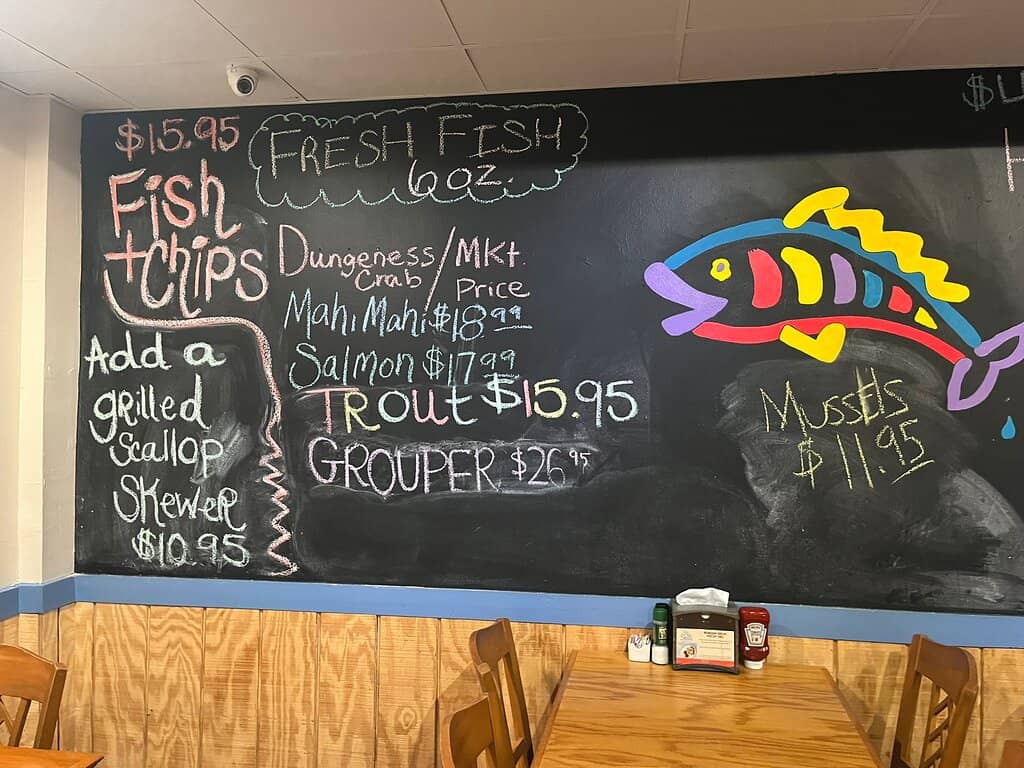 $15.95
Fish
+Chips
Add a
grilled
Scallop
Skewer
$10.95
FRESH FISH
6 oz.
Dungeness / MKt.
Crab Price
Mahi Mahi $18.99
Salmon $17.99
TRout $15.95
GROUPER $26.95
Mussels
$11.95